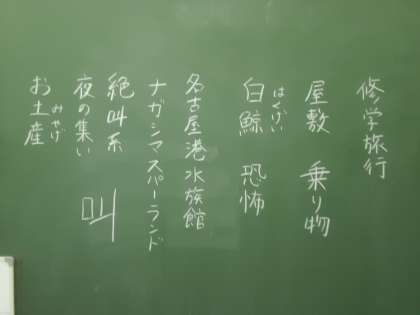 修学旅行
屋敷 乗り物
はくげい
白鯨 恐怖
名古屋港水族館
ナガシマスパーランド
絶叫系 叫
夜の集い
みやげ
お土産